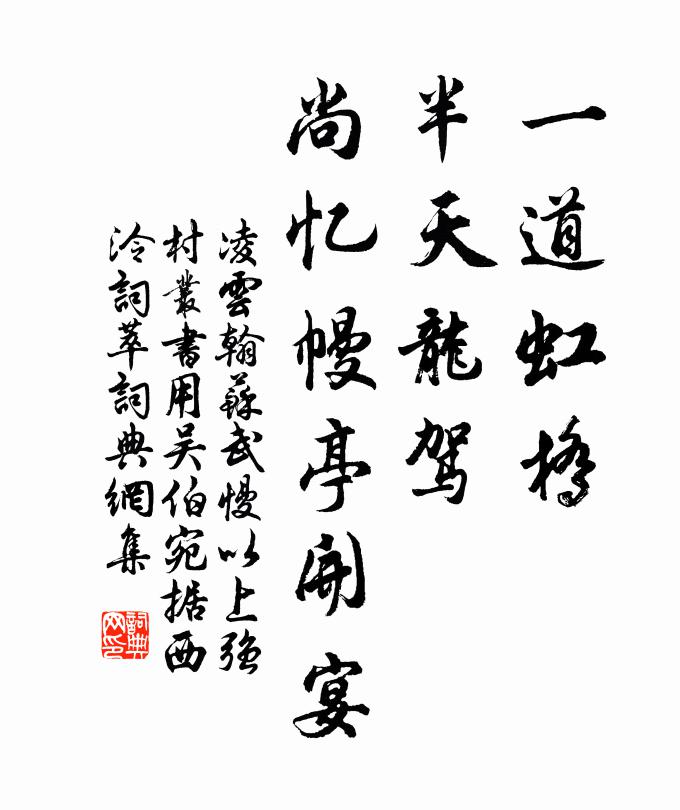 一道虹橋
半天龍駕
尚忆幔亭開宴
凌雲翰蘇武慢以上彊
村叢書用吴伯宛据西
泠詞萃詞典網集
詞典网印